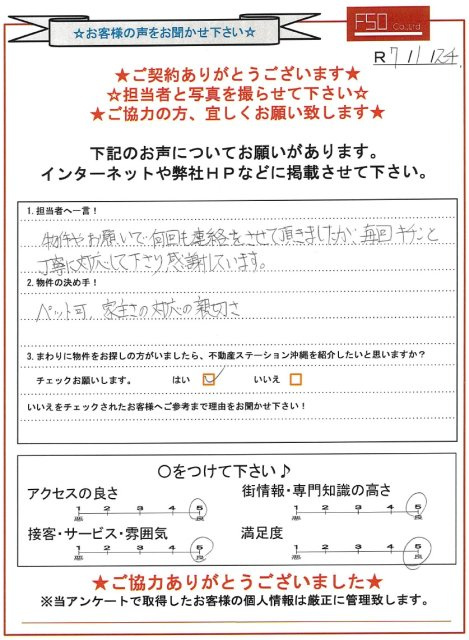 ☆お客様の声をお聞かせ下さい☆
FSO
Co.,Ltd.
R 7 / 1 /
★ご契約ありがとうございます★
☆担当者と写真を撮らせて下さい☆
★ご協力の方、宜しくお願い致します★
下記のお声についてお願いがあります。
インターネットや弊社HPなどに掲載させて下さい。
1. 担当者へ一言！
物件やお願いで何回も連絡をさせて頂きましたが、毎回キチンと
丁寧に対応して下さり感謝しています。
2. 物件の決め手！
ペット可、家主さの対応の親切さ
3. まわりに物件をお探しの方がいましたら、不動産ステーション沖縄を紹介したいと思いますか？
チェックお願いします。 はい いいえ
いいえをチェックされたお客様へご参考まで理由をお聞かせ下さい！
〇をつけて下さい♪
アクセスの良さ 街情報・専門知識の高さ
1 2 3 4 5 1 2 3 4 5
悪 良 悪 良
接客・サービス・雰囲気 満足度
1 2 3 4 5 1 2 3 4 5
悪 良 悪 良
★ご協力ありがとうございました★
※当アンケートで取得したお客様の個人情報は厳正に管理致します。